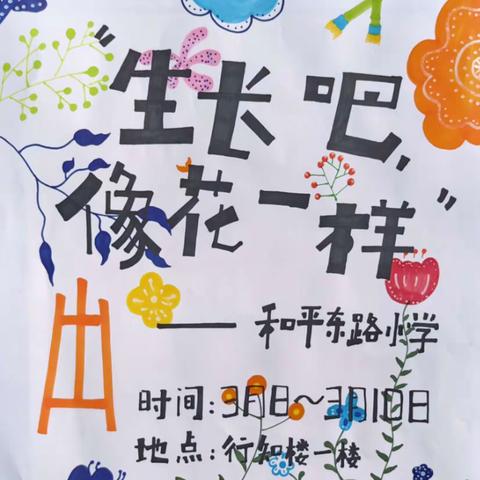 "生长吧,
像花一样"
——和平东路小学
时间:3月8日~3月10日
地点:行知楼一楼